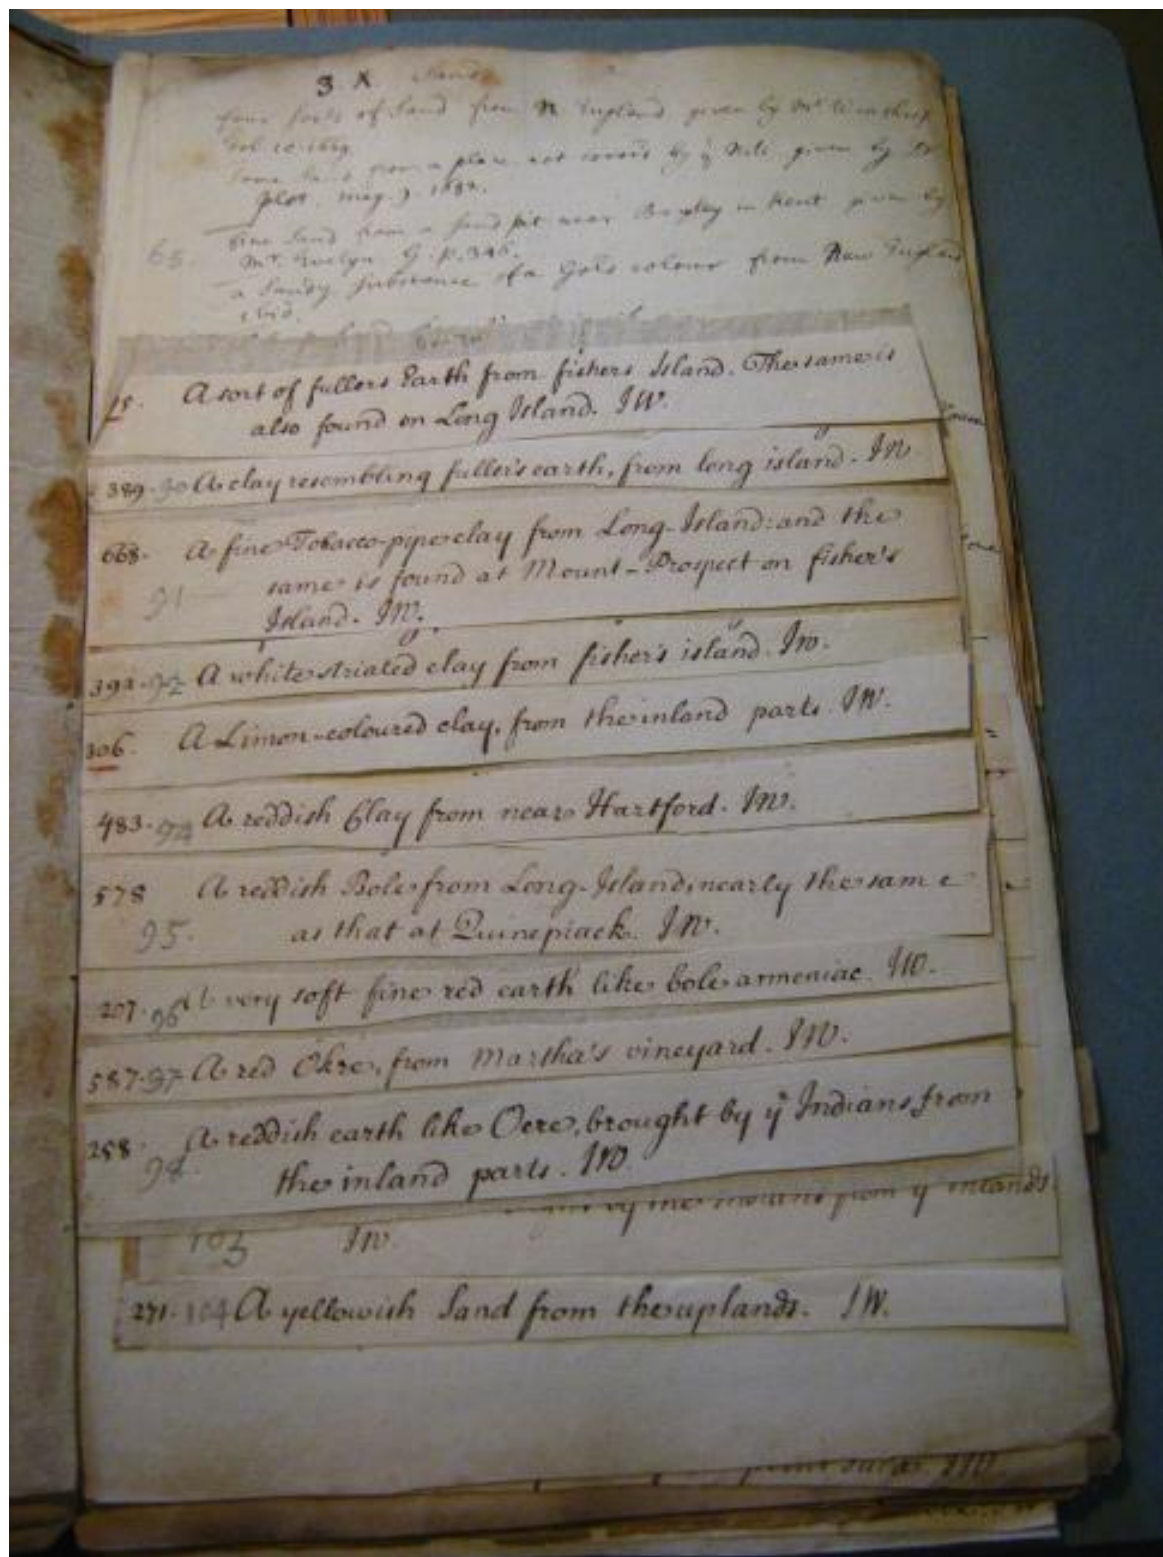 3 X Sands
four sorts of sand from N England given by Mr Winthrop
1669.
some sand from a place not cover'd by ye Nile given by Dr
plot. may. 9. 1682.
fine sand from a sand pit near Bexley in Kent given by
65. Mr. Evelyn G. p. 346.
a sandy substance of a Gold colour from New England
ibid.
15. A sort of fullers Earth from fishers Island. The same is
also found on Long Island. JW.
389. 90 A clay resembling fuller's earth, from long island. JW
668. A fine Tobacco-pipe clay from Long-Island: and the
91 same is found at Mount-Prospect on fisher's
Island. JW.
392. 92 A white striated clay from fisher's island. JW.
306. A Limon-coloured clay, from the inland parts. JW.
483. 94 A reddish Clay from near Hartford. JW.
578 A reddish Bole from Long-Island, nearly the same
95. as that at Quinepiack. JW.
207. 96 A very soft fine red earth like bole armeniac. JW.
587. 97 A red Okre, from Martha's vineyard. JW.
258. A reddish earth like Ocre, brought by ye Indians from
98. the inland parts. JW
by the Indians from ye inlands.
103 JW
271. 104 A yellowish Sand from the uplands. JW.
JW